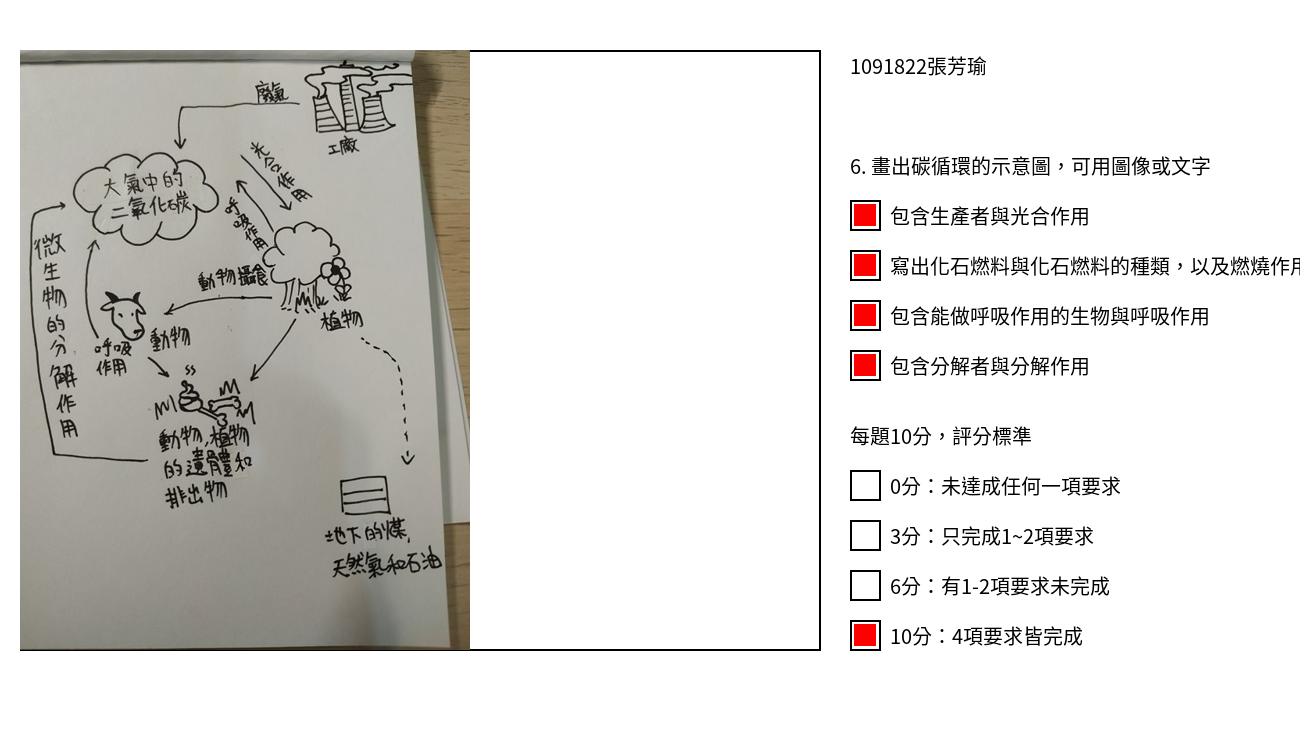 廢氣
工廠
光合作用
大氣中的
二氧化碳
呼吸作用
微生物的分解作用
動物攝食
植物
動物
呼吸
作用
動物,植物
的遺體和
排出物
地下的煤,
天然氣和石油
1091822張芳瑜
6. 畫出碳循環的示意圖，可用圖像或文字
包含生產者與光合作用
寫出化石燃料與化石燃料的種類，以及燃燒作用
包含能做呼吸作用的生物與呼吸作用
包含分解者與分解作用
每題10分，評分標準
0分：未達成任何一項要求
3分：只完成1~2項要求
6分：有1-2項要求未完成
10分：4項要求皆完成